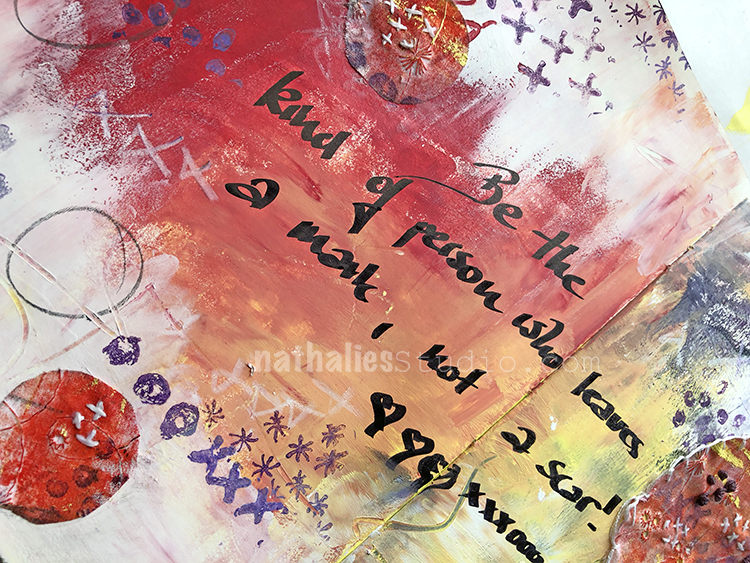 Be the
kind of person who leaves
a mark, not a scar!
♡♡♡ xxx ooo
nathaliesStudio.com